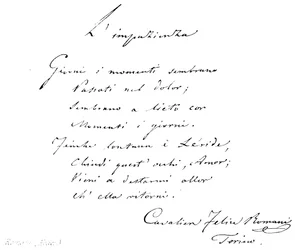 L'impazienza
Giorni i momenti sembrano
Passati nel dolor;
Sembrano a lieto cor
Momenti i giorni.
Finchè lontana è Leride,
Chiudi quest' occhi, Amor;
Vieni a destarmi allor
Ch' ella ritorni.
Cavalier Felice Romani
Torino.